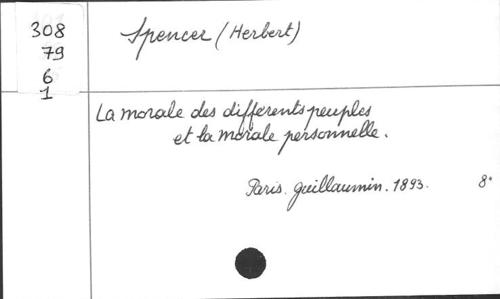 308
79
6
1
Spencer (Herbert)
La morale des differents peuples
et la morale personnelle.
Paris. Guillaumin. 1893. 8°